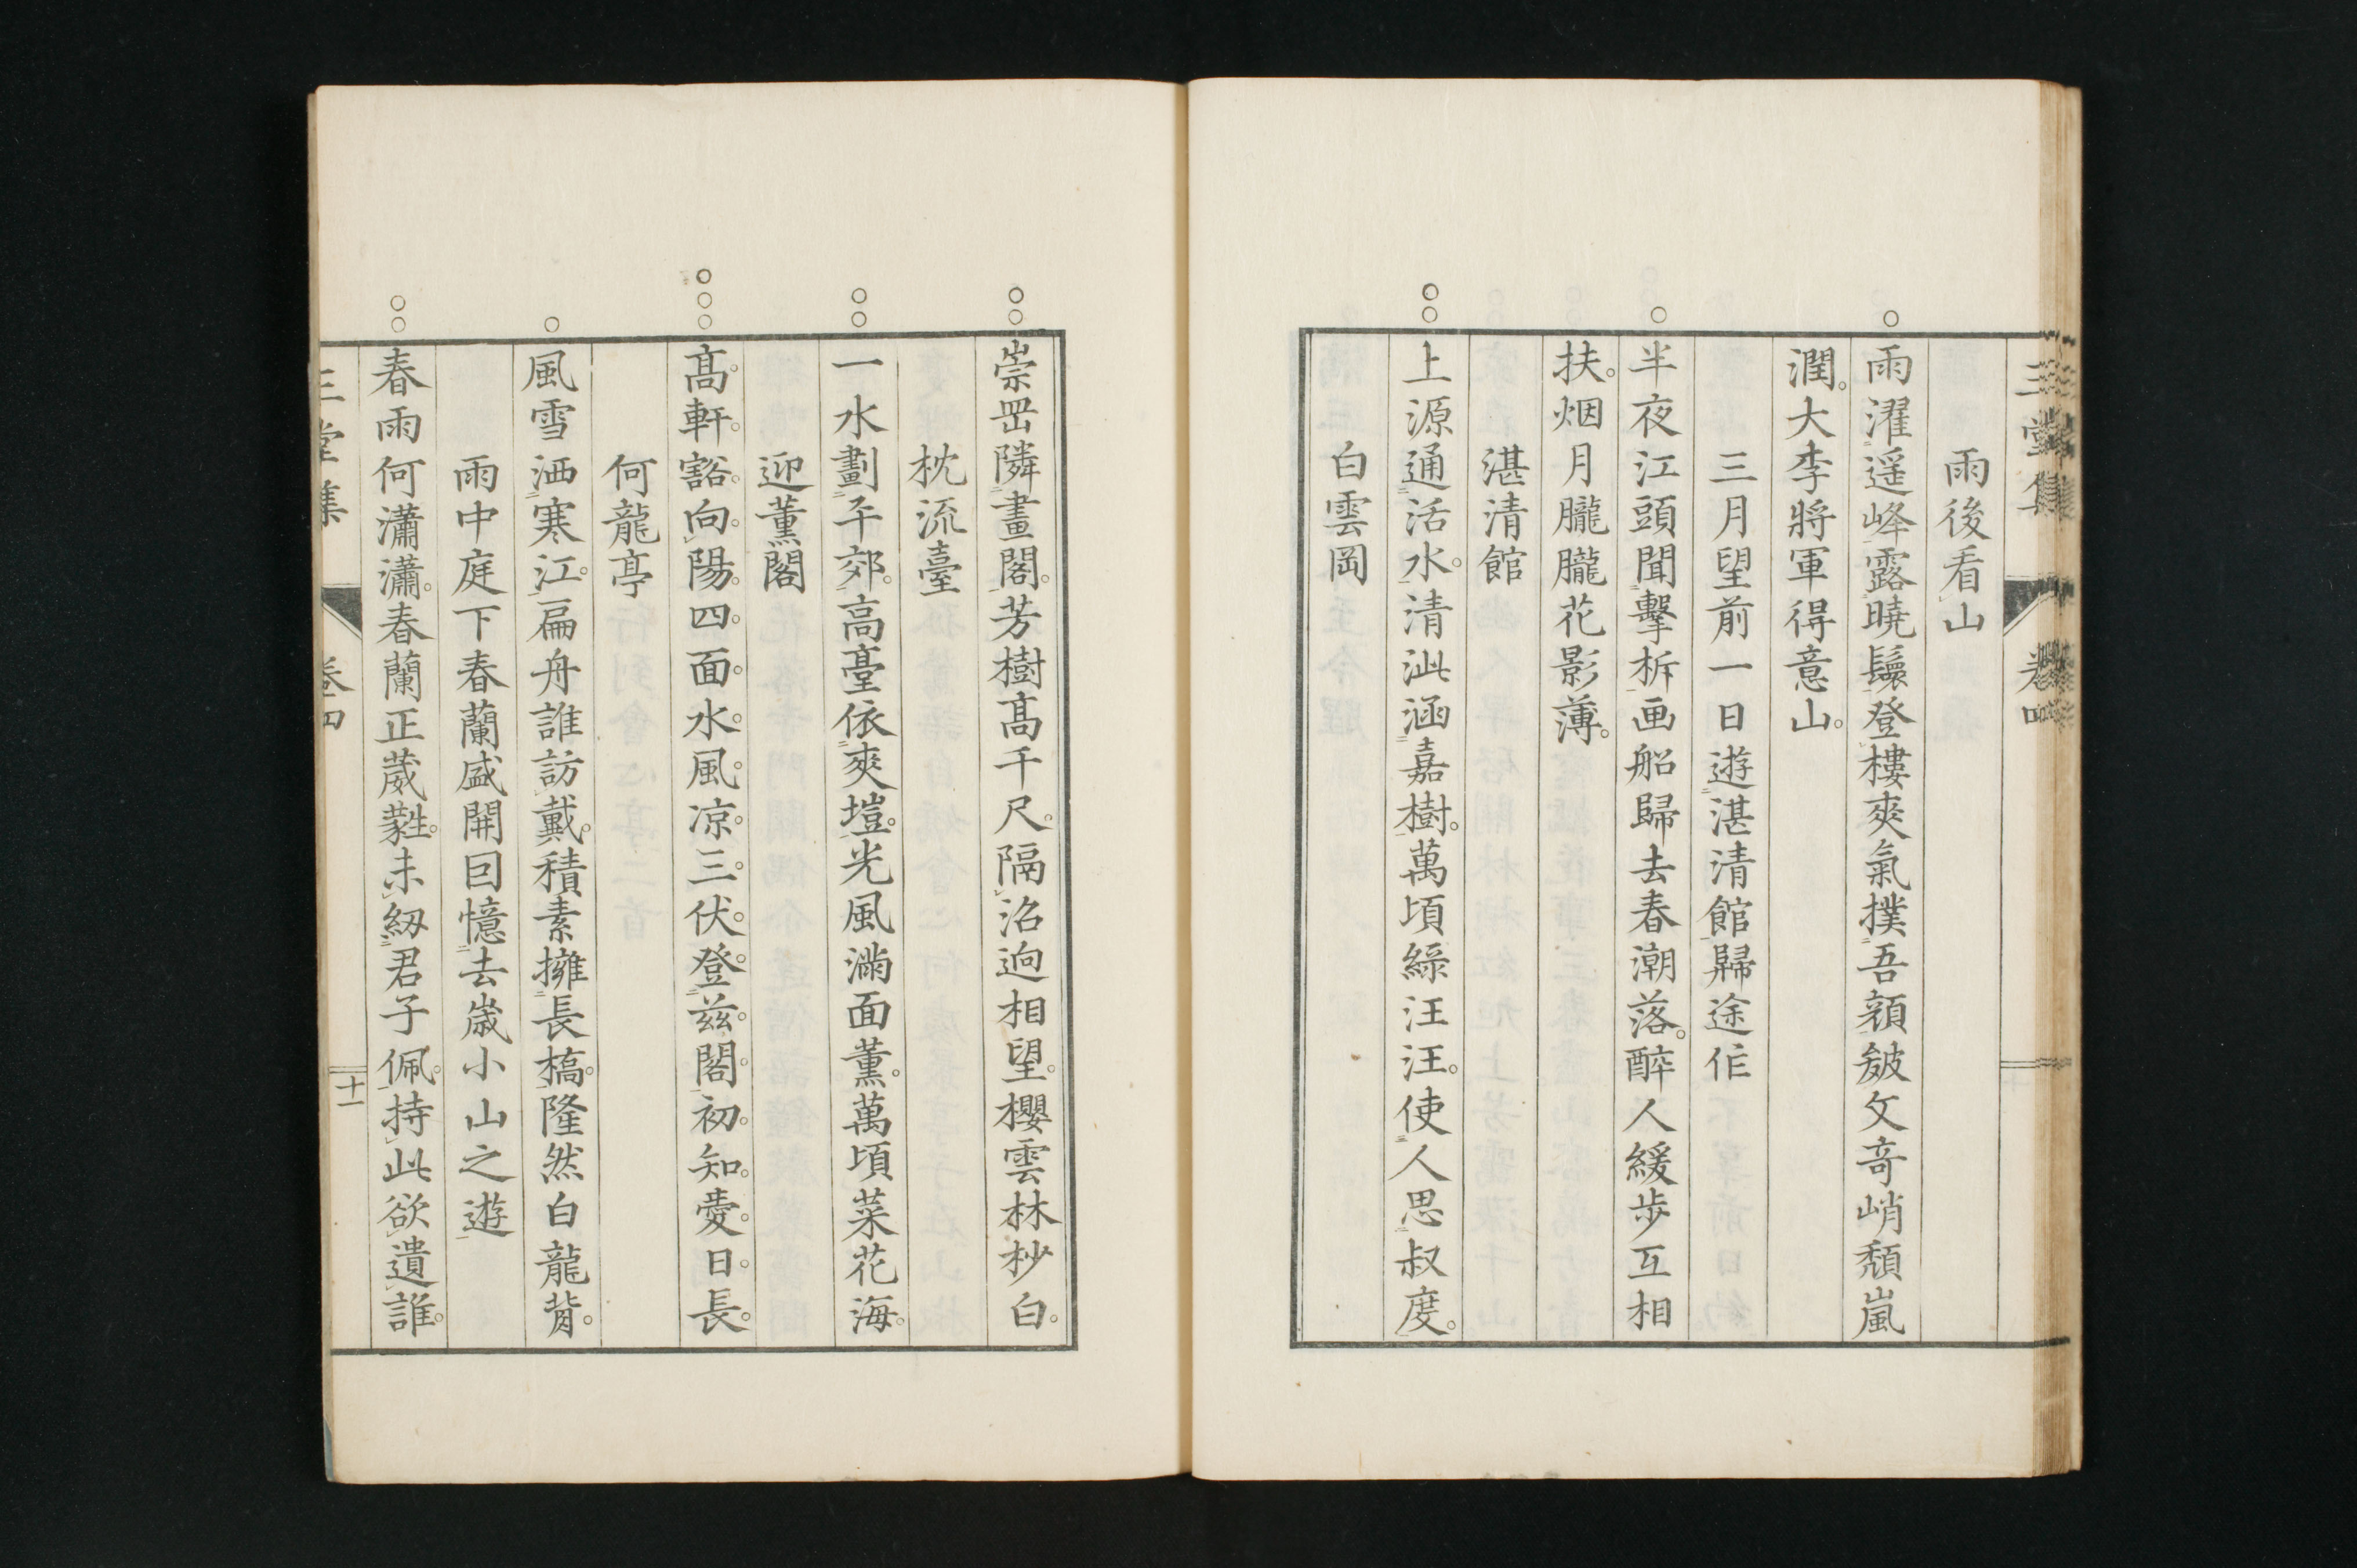 三堂集 卷四
雨後看山
雨濯遥峰露曉鬟登樓爽氣撲吾顔皴文奇峭頽嵐
潤大李將軍得意山
三月望前一日遊湛清館歸途作
半夜江頭聞擊柝画船歸去春潮落醉人緩歩互相
扶烟月朧朧花影薄
湛清館
上源通活水清泚涵嘉樹萬頃緑汪汪使人思叔度
白雲岡
崇罡隣畫閣芳樹髙千尺隔沼逈相望櫻雲林杪白
枕流臺
一水劃平郊高臺依爽塏光風滿面薫萬頃菜花海
迎薫閣
髙軒豁向陽四面水風凉三伏登茲閣初知愛日長
何龍亭
風雪洒寒江扁舟誰訪戴積素擁長橋隆然白龍背
雨中庭下春蘭盛開囙憶去歳小山之遊
春雨何瀟瀟春蘭正葳蕤未紉君子佩持此欲遺誰
三堂集 卷四 十一